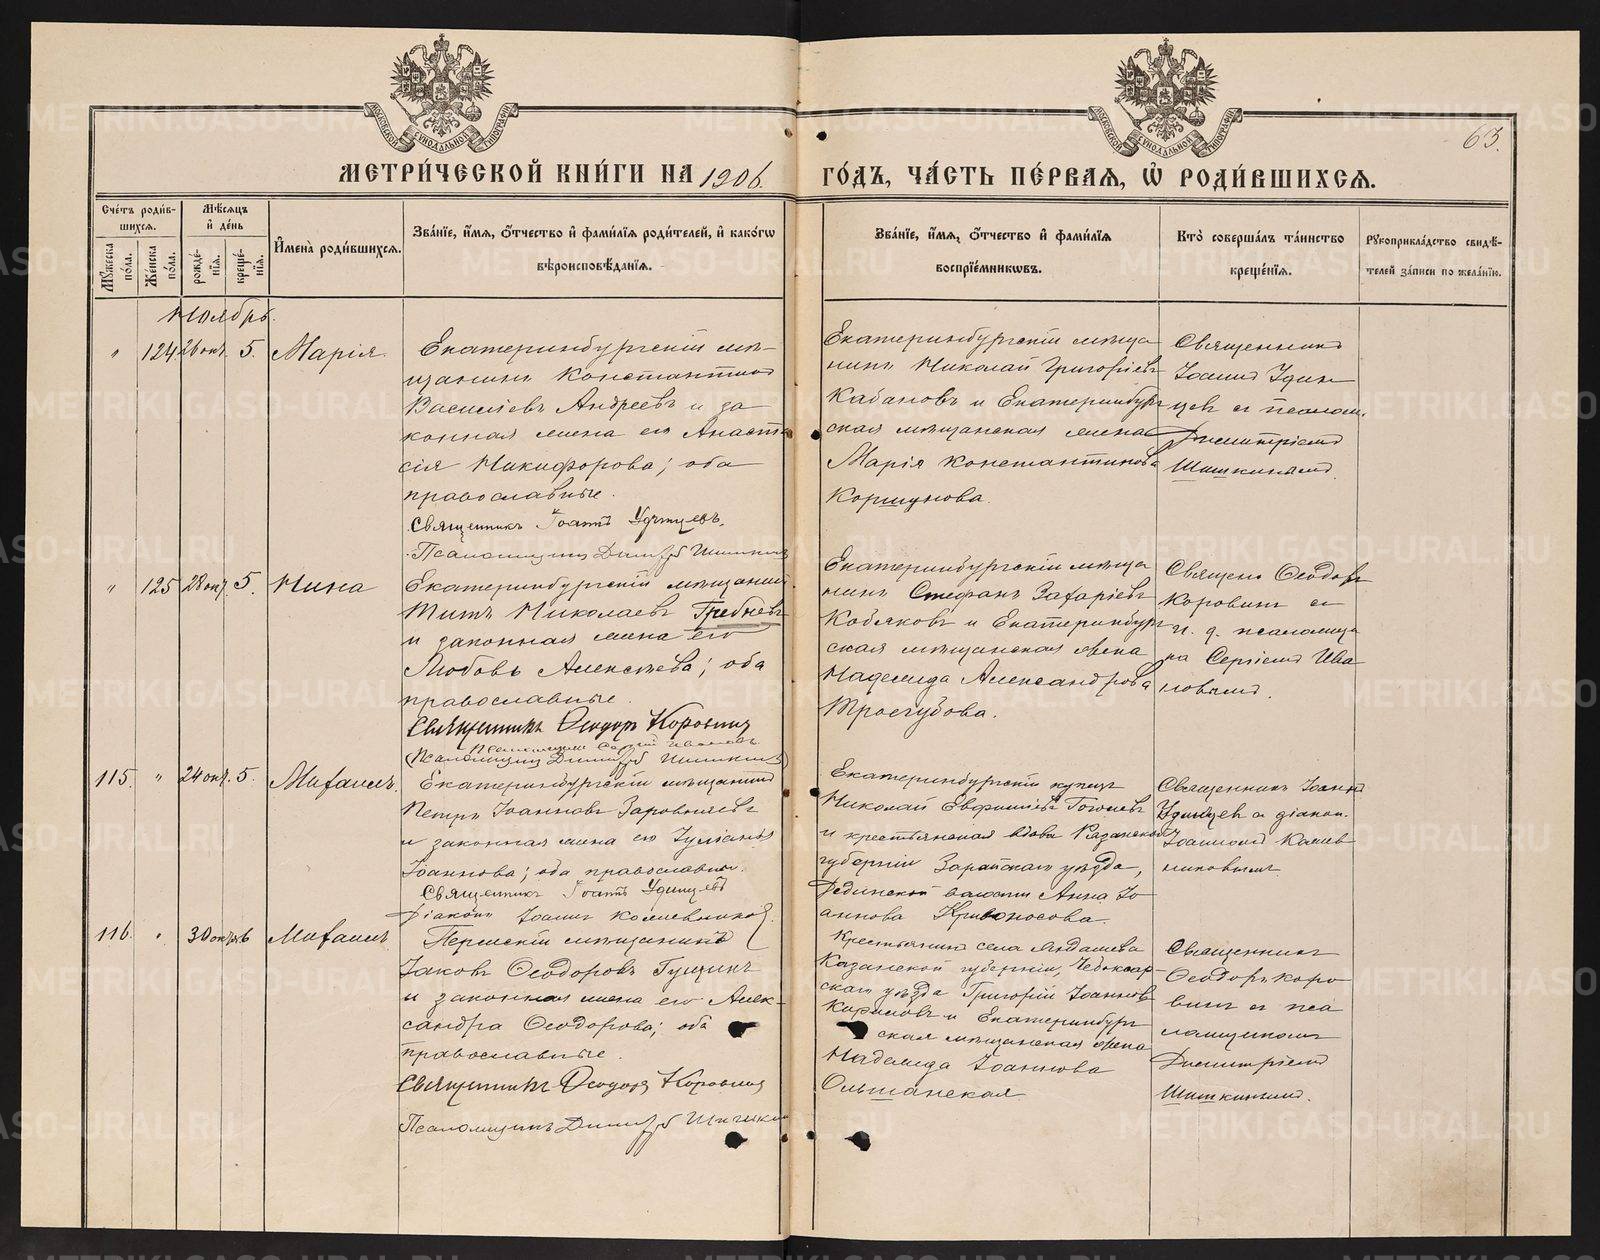 МОСКОВСКОЙ СѴНОДАЛЬНОЙ ТИПОГРАФІИ
МОСКОВСКОЙ СѴНОДАЛЬНОЙ ТИПОГРАФІИ
63.
МЕТРИ́ЧЕСКОЙ КНИ́ГИ НА 1906.
ГО́ДЪ, ЧА́СТЬ ПЕ́РВАѦ, Ѡ҆ РОДИ́ВШИХСѦ.
Сче́тъ роди́в-
шихсѧ.
Мѣ́сѧцъ
и҆ де́нь
Мꙋжеска по́ла.
Же́нска по́ла.
рожде́-нїѧ.
креще́-нїѧ.
И҆мена̀ роди́вшихсѧ.
Зва́нїе, и҆́мѧ, ѻ҆́тчество и҆ фами́лїѧ роди́телей, и҆ како́гѡ
вѣроисповѣ́данїѧ.
Зва́нїе, и҆́мѧ, ѻ҆́тчество и҆ фами́лїѧ
воспрїе́мникѡвъ.
Кто̀ соверша́лъ та́инство
креще́нїѧ.
Рꙋкоприкла́дство свидѣ́-
телей за́писи по жела́нїю.
Ноябрь.
" 124 26 окт. 5. Марія.
Екатеринбургскій мѣ-
щанинъ Константинъ
Васильевъ Андреевъ и за
конная жена его Анаста
сія Никифорова; оба
православные.
Священникъ Іоаннъ Удинцевъ.
Псаломщикъ Димитрій Шишкинъ
Екатеринбургскій мѣща
нинъ Николай Григорьевъ
Кабановъ и Екатеринбург
ская мѣщанская жена
Марія Константинова
Коршунова
Священникъ
Іоаннъ Удин
цевъ съ псалом.
Димитріемъ
Шишкинымъ.
" 125 28 окт. 5. Нина
Екатеринбургскій мѣщанинъ
Титъ Николаевъ Гребневъ
и законная жена его
Любовь Алексѣева; оба
православные.
Священникъ Ѳеодоръ Коровинъ
Псаломщикъ Сергій Ивановъ
(Псаломщикъ Димитрій Шишкинъ)
Екатеринбургскій мѣща
нинъ Стефанъ Захаріевъ
Кобяковъ и Екатеринбург
ская мѣщанская жена
Надежда Александрова
Трегубова.
Священ. Ѳеодоръ
Коровинъ съ
и. д. псаломщи
ка Сергіемъ Ива
новымъ.
115. " 24 окт. 5. Михаилъ.
Екатеринбургскій мѣщанинъ
Петръ Іоанновъ Заровняевъ
и законная жена его Іуліанія
Іоаннова; оба православные.
Священникъ Іоаннъ Удинцевъ
Діаконъ Іоаннъ
Екатеринбургскій купецъ
Николай Евфиміевъ
и крестьянская вдова Рязанской
губерніи Зарайскаго уѣзда,
Дединской волости Анна Іо
аннова Кривоносова.
Священникъ Іоаннъ
Удинцевъ съ діакон.
Іоанномъ
никовымъ
116. " 30 окт. 6 Михаилъ
Пермскій мѣщанинъ
Іаковъ Ѳеодоровъ Гущинъ
и законная жена его Алек-
сандра Ѳеодорова; оба
православные.
Священникъ Ѳеодоръ Коровинъ
Псаломщикъ Димитрій Шишкинъ
Крестьянинъ села
Казанской губерніи, Чебоксар-
скаго уѣзда Григорій Іоанновъ
и Екатеринбург
ская мѣщанская жена
Надежда Іоаннова
Ольшанская
Священникъ
Ѳеодоръ Коро
винъ съ пса
ломщикомъ
Димитріемъ
Шишкинымъ.
METRIKI.GASO-URAL.RU